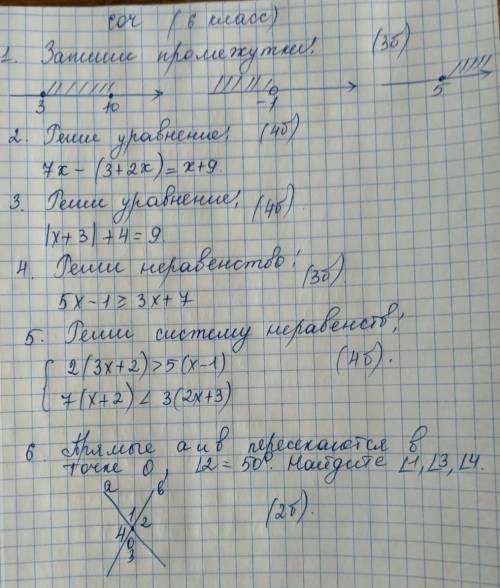 СОЧ (6 класс)
1. Запиши промежутки: (3б)
3 10 -1 5
2. Реши уравнение: (4б)
7x - (3+2x) = x+9.
3. Реши уравнение: (4б).
|x+3| + 4 = 9.
4. Реши неравенство: (3б).
5x - 1 ≥ 3x + 7
5. Реши систему неравенств:
{ 2(3x+2) > 5(x-1)
7(x+2) < 3(2x+3)
(4б).
6. Прямые a и b пересекаются в
точке O, ∠2 = 50°. Найдите ∠1, ∠3, ∠4.
a b
1 2
4 O
3
(2б)